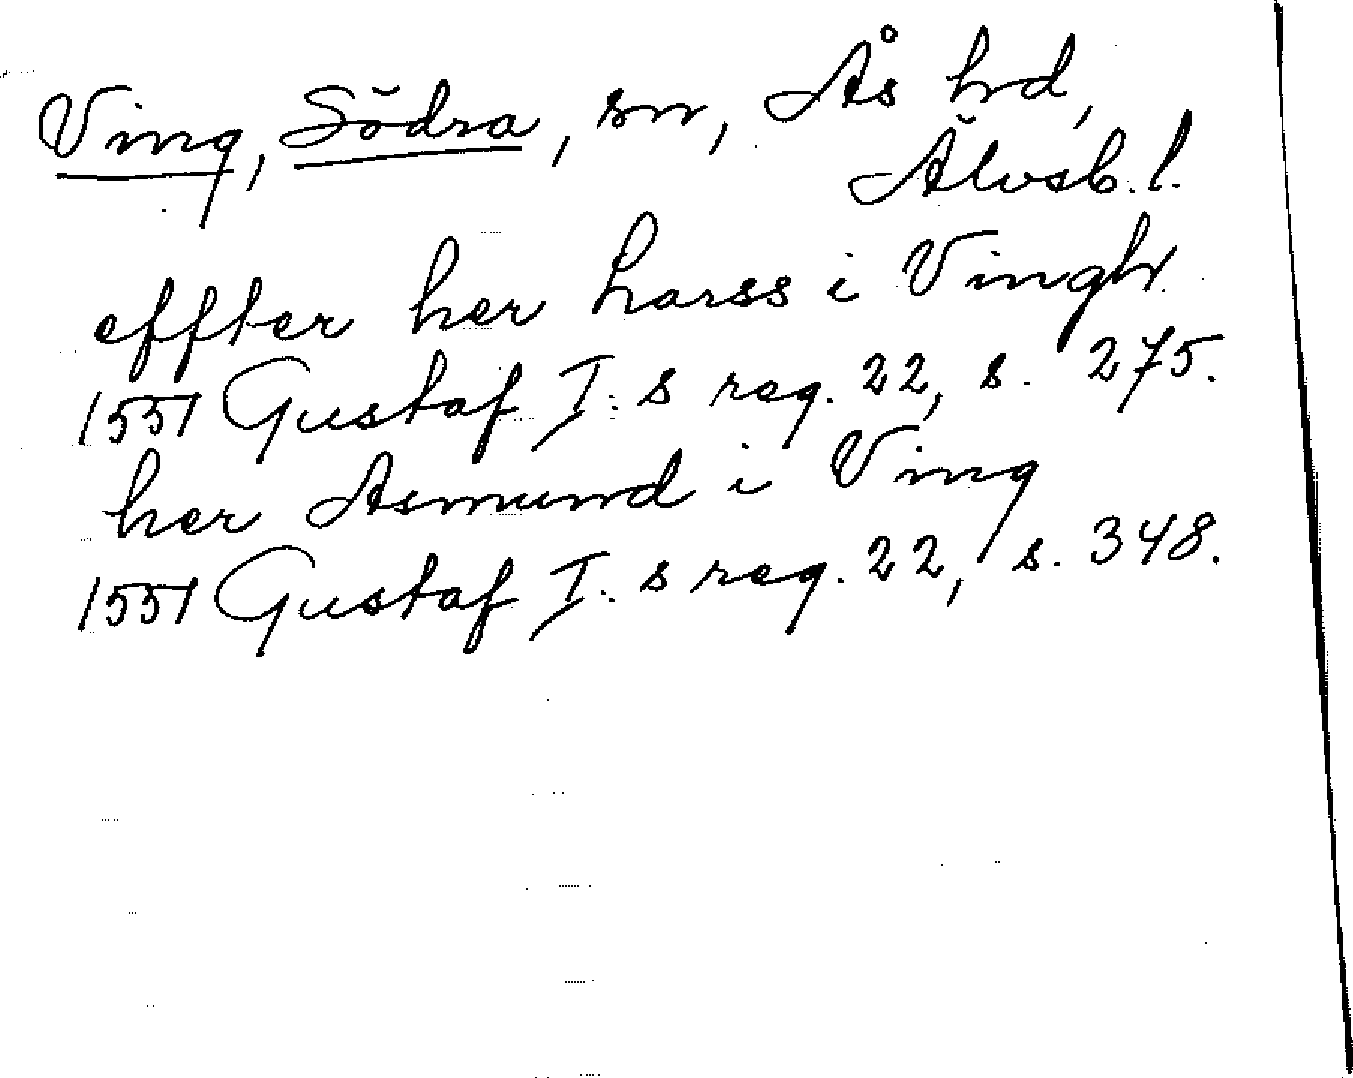 Ving, Södra, sn, Ås hd,
Älvsb. l.
effter her Larss i Vingh
1551 Gustaf I:s reg. 22, s. 275.
her Asmund i Ving
1551 Gustaf I:s reg. 22, s. 348.